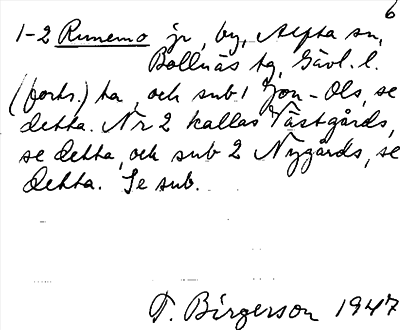 6
1-2 Runemo jr, by, Alfta sn,
Bollnäs tg, Gävl. l.
(forts.) ta, och sub 1 Jon-Ols, se
detta. Nr 2 kallas Västgårds,
se detta, och sub 2 Nygårds, se
detta. Se sub.
T. Birgerson 1947